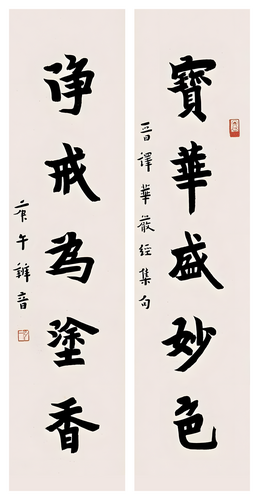 寶華盛妙色
晉譯華嚴經集句
淨戒為塗香
庚午辯音